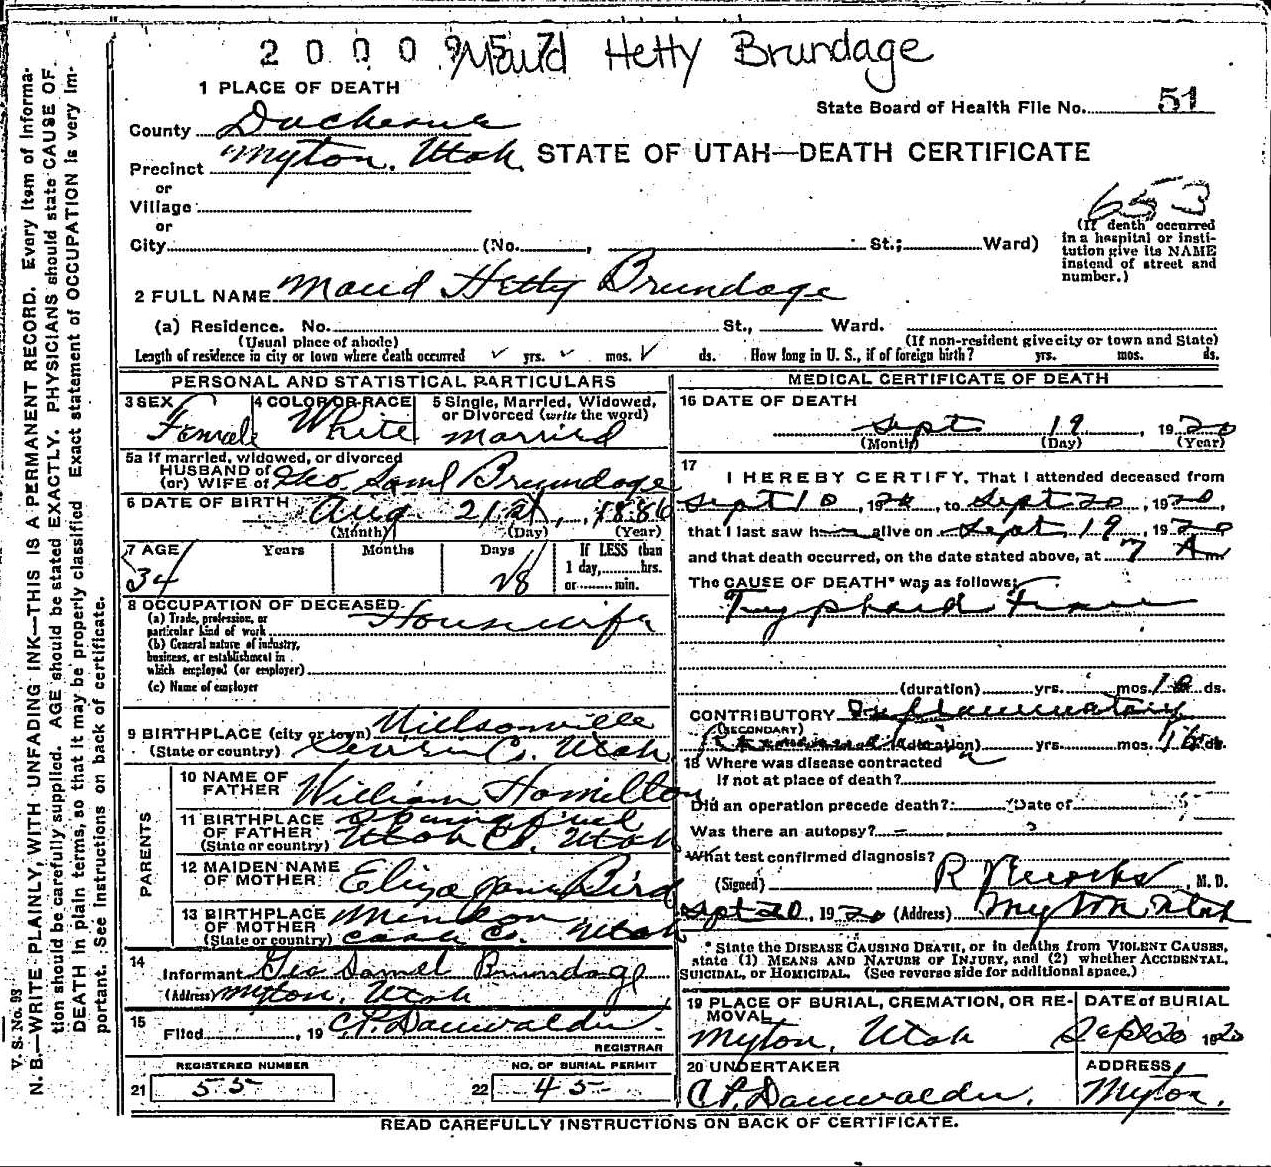 2 0 0 0 9 5 7 Maud Hetty Brundage
1 PLACE OF DEATH
State Board of Health File No. 51
County Duchesne
Precinct Myton, Utah. STATE OF UTAH—DEATH CERTIFICATE
or
Village
or
City (No. , St.; Ward)
653
(If death occurred in a hospital or insti-
tution give its NAME
instead of street and
number.)
2 FULL NAME Maud Hetty Brundage
(a) Residence. No. St., Ward.
(Usual place of abode) (If non-resident give city or town and State)
Length of residence in city or town where death occurred yrs. mos. ds. How long in U. S., if of foreign birth? yrs. mos. ds.
PERSONAL AND STATISTICAL PARTICULARS
3 SEX Female
4 COLOR OR RACE White
5 Single, Married, Widowed,
or Divorced (write the word)
married
5a If married, widowed, or divorced
HUSBAND of
(or) WIFE of Geo. Saml Brundage
6 DATE OF BIRTH Aug 21st, 1886
(Month) (Day) (Year)
7 AGE Years Months Days If LESS than
1 day, hrs.
or min.
34 28
8 OCCUPATION OF DECEASED Housewife
(a) Trade, profession, or
particular kind of work
(b) General nature of industry,
business, or establishment in
which employed (or employer)
(c) Name of employer
9 BIRTHPLACE (city or town)
(State or country) Sevier Co. Utah
PARENTS
10 NAME OF
FATHER William Hamilton
11 BIRTHPLACE
OF FATHER
(State or country) Utah Co. Utah
12 MAIDEN NAME
OF MOTHER Eliza Jane Bird
13 BIRTHPLACE
OF MOTHER
(State or country) Utah
14
Informant Geo Samel Brundage
(Address) Myton, Utah
15
Filed , 19 C.P. Dannwalder.
REGISTRAR
REGISTERED NUMBER NO. OF BURIAL PERMIT
21 55 22 45
MEDICAL CERTIFICATE OF DEATH
16 DATE OF DEATH
Sept 19, 1920
(Month) (Day) (Year)
17
I HEREBY CERTIFY, That I attended deceased from
Sept 10, 1920, to Sept 20, 1920,
that I last saw h alive on Sept 19, 1920
and that death occurred, on the date stated above, at 7 Am
The CAUSE OF DEATH* was as follows:
Tyyphoid Fever
(duration) yrs. mos. ds.
CONTRIBUTORY Inflammatory
(SECONDARY)
(duration) yrs. mos. ds.
18 Where was disease contracted
If not at place of death?
Did an operation precede death? Date of
Was there an autopsy?
What test confirmed diagnosis?
(Signed) M. D.
Sept 20, 1920 (Address) Myton Utah
* State the DISEASE CAUSING DEATH, or in deaths from VIOLENT CAUSES,
state (1) MEANS AND NATURE OF INJURY, and (2) whether ACCIDENTAL,
SUICIDAL, or HOMICIDAL. (See reverse side for additional space.)
19 PLACE OF BURIAL, CREMATION, OR RE-
MOVAL
Myton, Utah
DATE of BURIAL
Sept 20 1920
20 UNDERTAKER
C.P. Dannwalder.
ADDRESS
Myton.
READ CAREFULLY INSTRUCTIONS ON BACK OF CERTIFICATE.
V. S. No. 93
N. B.—WRITE PLAINLY, WITH UNFADING INK—THIS IS A PERMANENT RECORD. Every item of Informa-
tion should be carefully supplied. AGE should be stated EXACTLY. PHYSICIANS should state CAUSE OF
DEATH in plain terms, so that it may be properly classified. Exact statement of OCCUPATION is very Im-
portant. See Instructions on back of certificate.